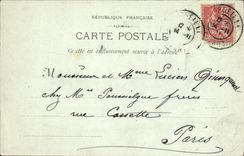 RÉPUBLIQUE FRANÇAISE
CARTE POSTALE
Ce côté est exclusivement réservé à l'adresse
Monsieur et Mme Lucien
chez Mrs Poussielgue frères
rue Cassette
Paris